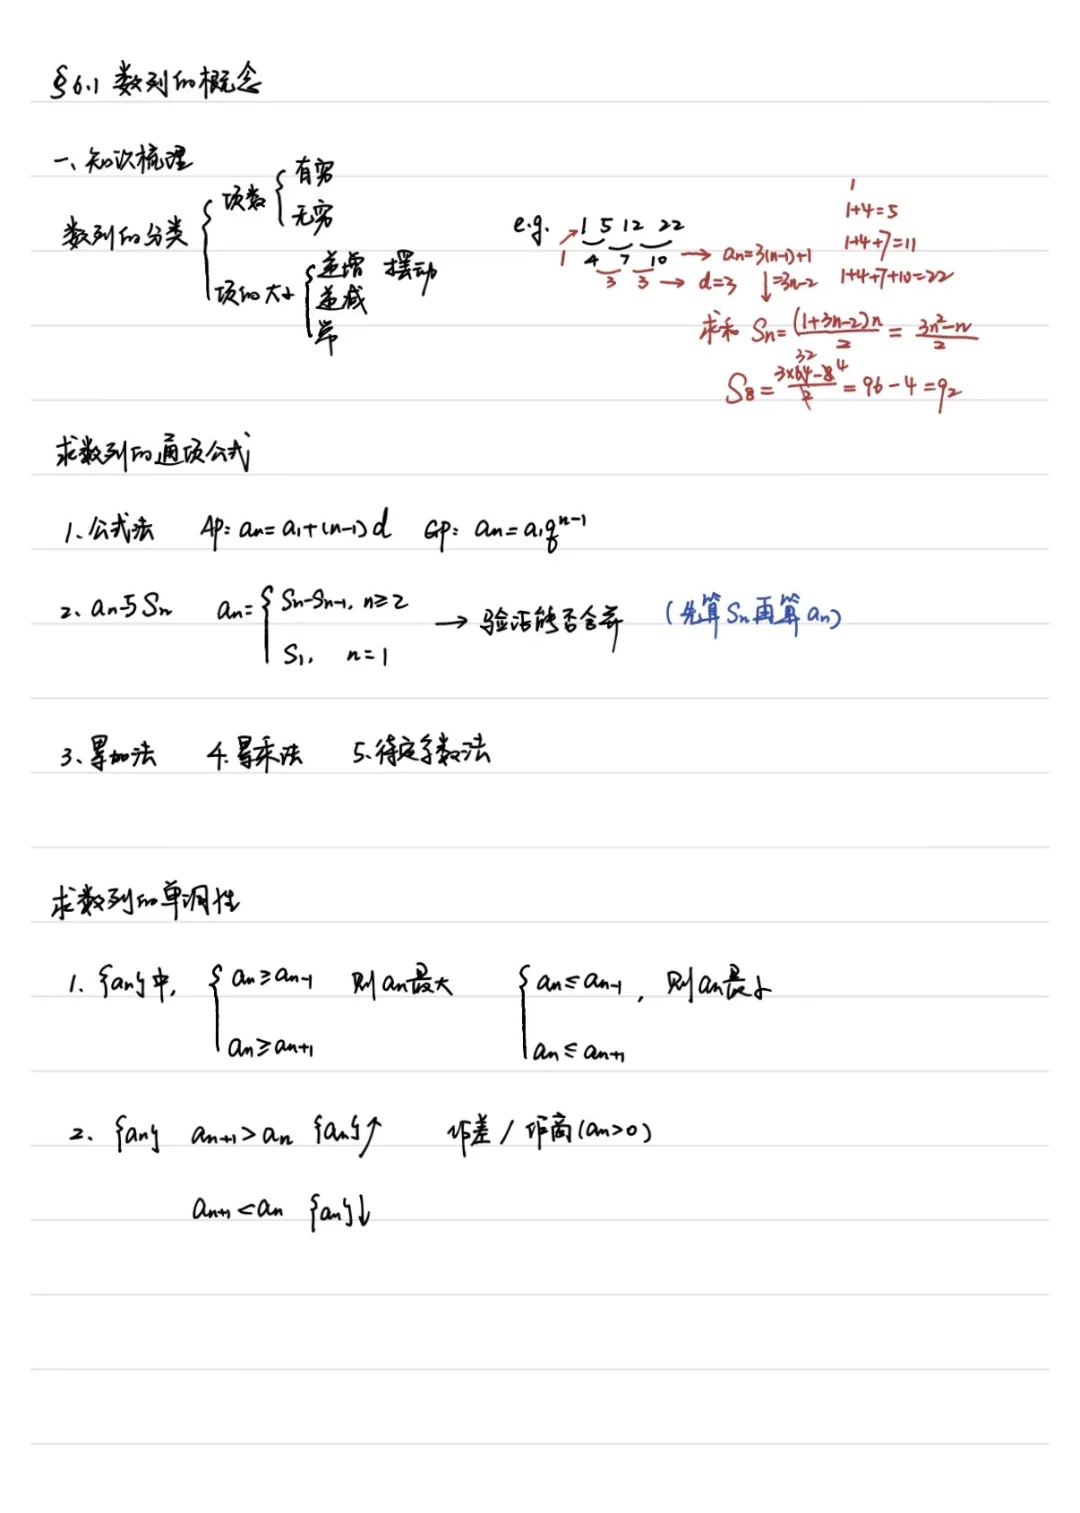 §6.1 数列的概念
一、知识梳理
数列的分类 { 项数 { 有穷
无穷
项的大小 { 递增 摆动
递减
常
e.g. 1 5 12 22
1 4 7 10 → an=3(n-1)+1
=3n-2
3 3 → d=3
1
1+4=5
1+4+7=11
1+4+7+10=22
求和 Sn=(1+3n-2)n/2 = 3n²-n/2
S8=3×64-8/2=96-4=92
32 4
求数列的通项公式
1、公式法 AP: an=a1+(n-1)d GP: an=a1qⁿ⁻¹
2、an与Sn an={ Sn-Sn-1, n≥2 → 验证能否合并 (先算Sn再算an)
S1, n=1
3、累加法 4.累乘法 5.待定系数法
求数列的单调性
1. {an}中, { an≥an-1 则an最大 { an≤an-1, 则an最小
an≥an+1 an≤an+1
2. {an} an+1>an {an}↑ 作差/作商(an>0)
an+1<an {an}↓